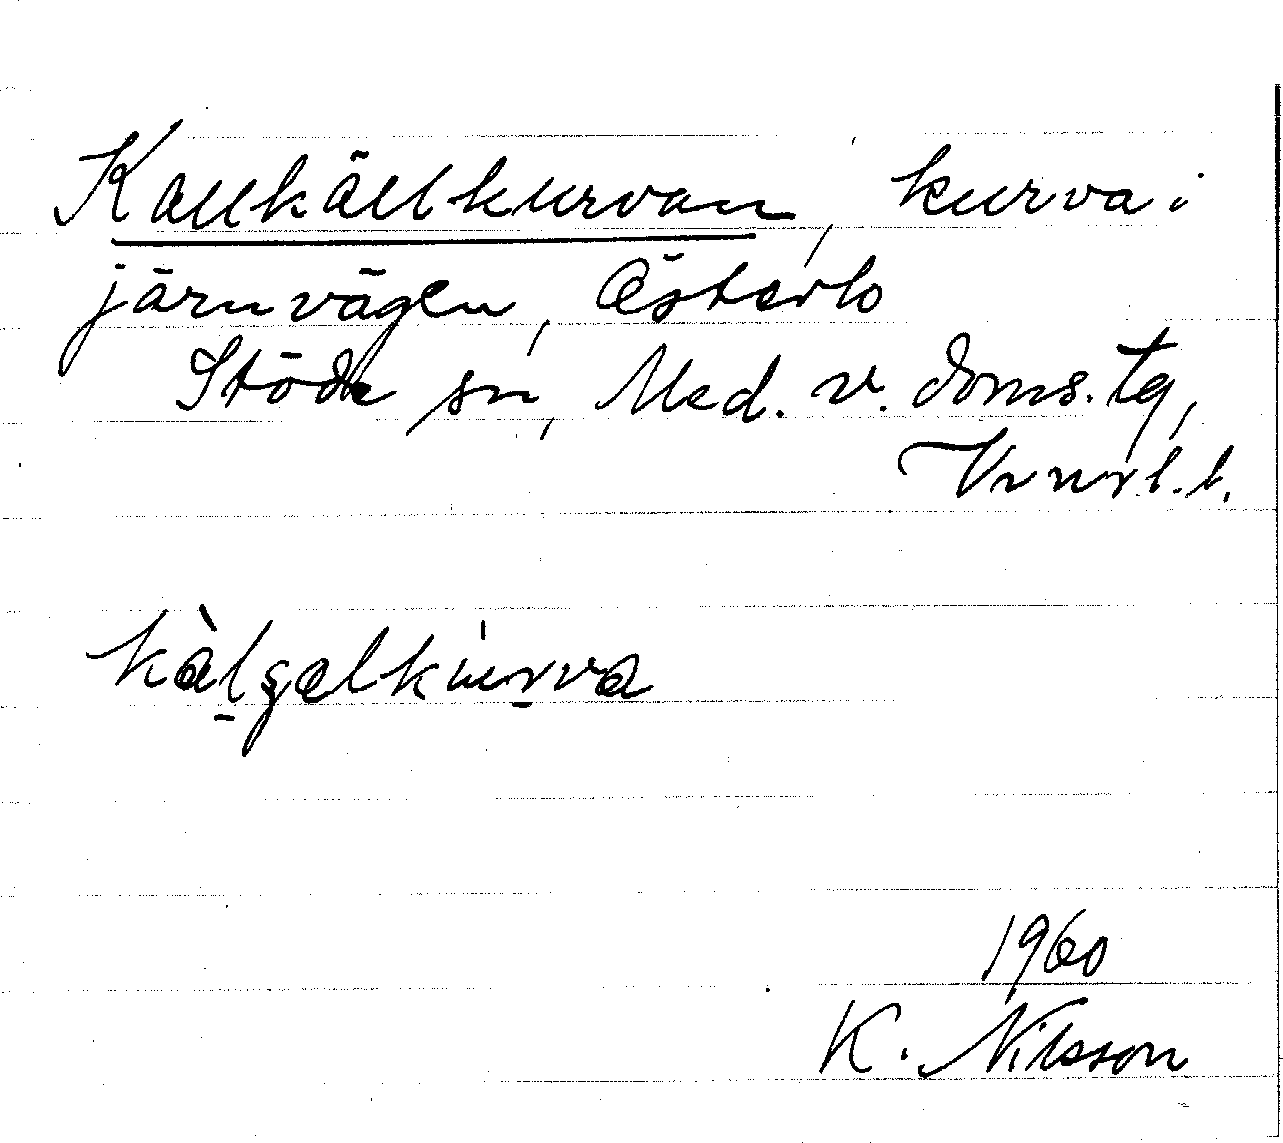 Kallkällkurvan, kurva i
järnvägen, Österlo
Stöde sn, Med. v. doms. tg,
Vnrl. l.
kàlşælkurva
1960
K. Nilsson